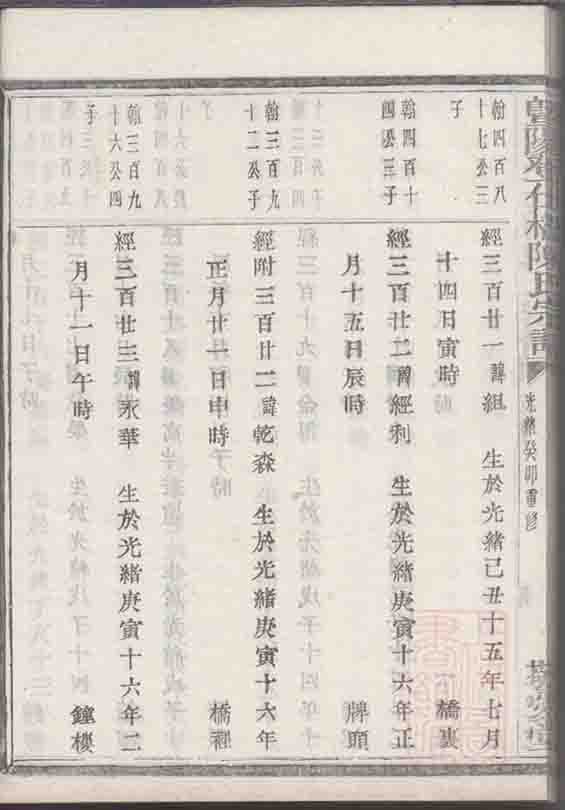 陳氏宗譜
光緒癸卯重修
翰四百八
十七公三
子
經三百廿一諱組 生於光緒己丑十五年七月
十四日寅時 橋裏
翰四百十
四公三子
經三百廿二諱經利 生於光緒庚寅十六年正
月十五日辰時 牌頭
翰三百九
十二公子
經附三百廿二諱乾森 生於光緒庚寅十六年
正月廿一日申時 橋裡
翰三百九
十六公四
子
經三百廿三諱永華 生於光緒庚寅十六年二
月十一日午時 鐘樓